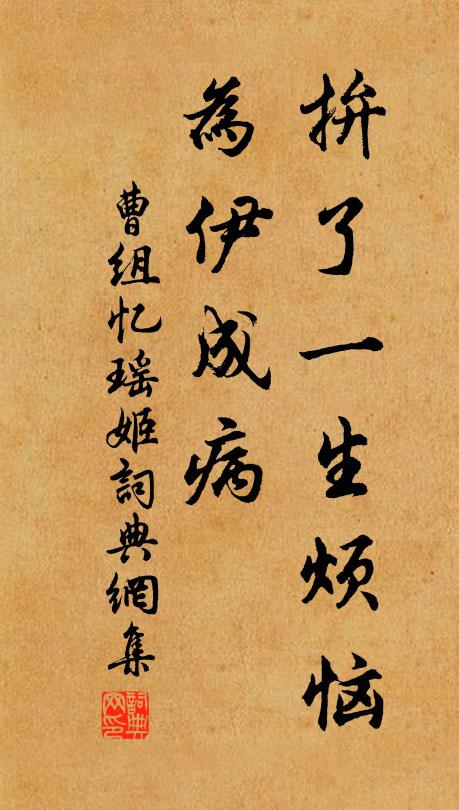 拚了一生烦恼
為伊成病
曹组忆瑶姬詞典網集
詞典网印